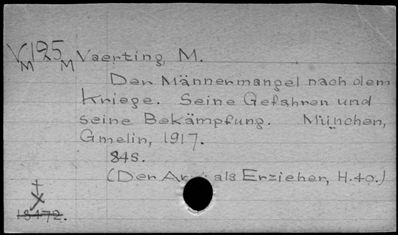 VM 195M Vaerting, M.
Der Männermangel nach dem
Kriege. Seine Gefahren und
seine Bekämpfung. München,
Gmelin, 1917.
84S.
(Der als Erzieher, H.40.)
18472.